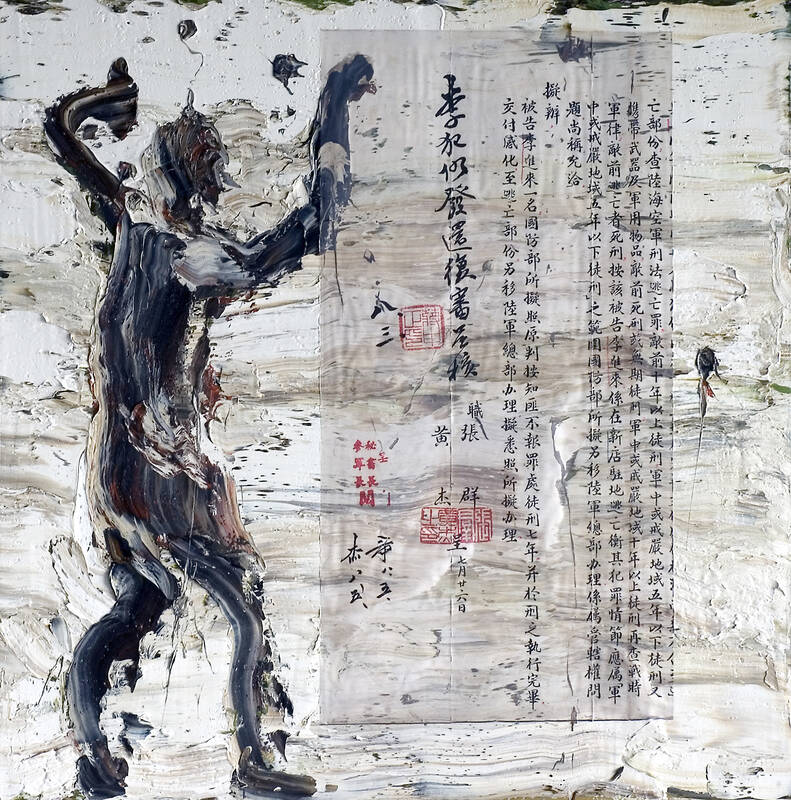 亡部份查陸海空軍刑法逃亡罪敵前十年以上徒刑軍中或戒嚴地域五年以下徒刑又
攜帶武器及軍用物品敵前死刑或無期徒刑軍中或戒嚴地域十年以上徒刑再查戰時
軍律敵前逃亡者死刑按該被告李進來係在新店駐地逃亡衡其犯罪情節應屬軍
中或戒嚴地域五年以下徒刑之範圍國防部所擬另移陸軍總部办理係屬管轄權問
題尚稱允洽
擬辦
被告李進來一名國防部所擬照原判按知匪不報罪處徒刑七年并於刑之執行完畢
交付感化至逃亡部份另移陸軍總部办理擬悉照所擬办理
職張群
黃杰
呈七月廿六日
李犯仍發還復審呈核
八三
秘書長
參軍長
閱